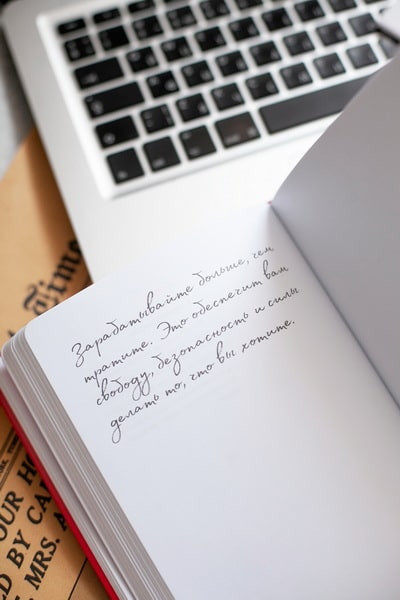 Зарабатывайте больше, чем
тратите. Это обеспечит вам
свободу, безопасность и силы
делать то, что вы хотите.
Times
OUR H
D BY CA
MRS. A